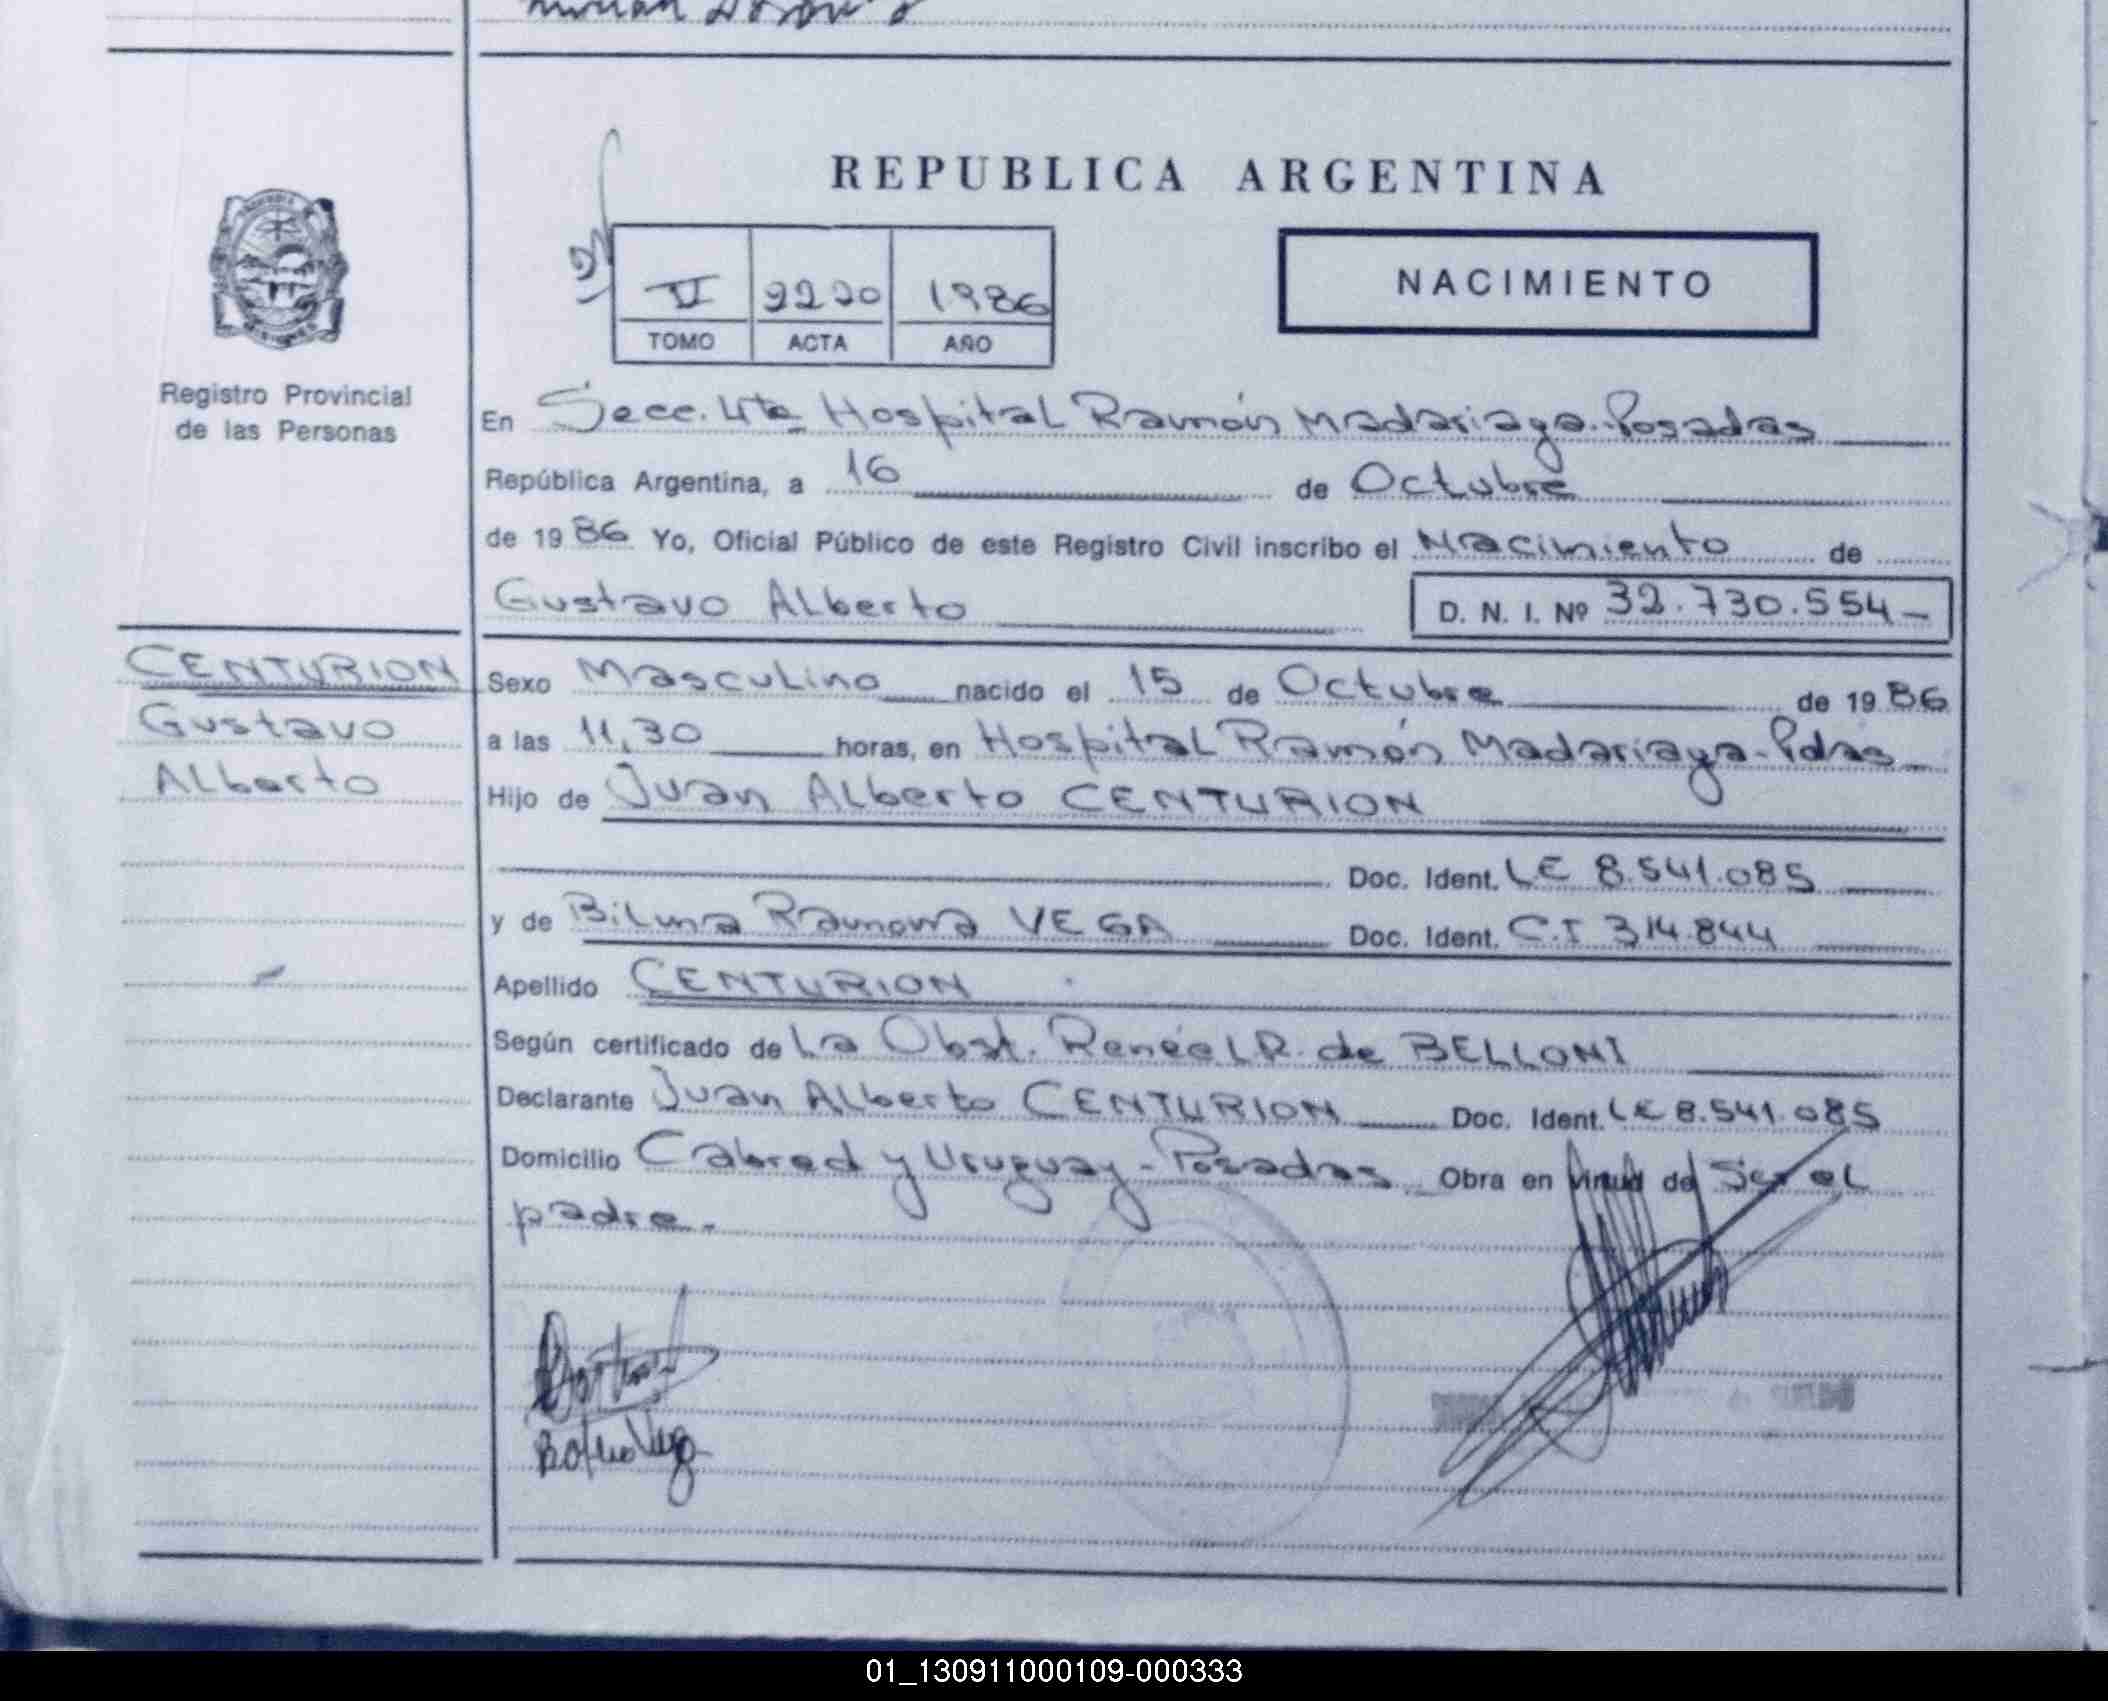 REPUBLICA ARGENTINA
NACIMIENTO
1986
TOMO ACTA AÑO
Registro Provincial
de las Personas
En Secc. 4ta Hospital Ramón Madariaga. Posadas
República Argentina, a 16 de Octubre
de 1986 Yo, Oficial Público de este Registro Civil inscribo el Nacimiento de
Gustavo Alberto D. N. I. Nº 32.730.554-
CENTURION
Gustavo
Alberto
Sexo Masculino nacido el 15 de Octubre de 1986
a las 11,30 horas, en Hospital Ramón Madariaga-Pdas
Hijo de Juan Alberto CENTURION
Doc. Ident. LE 8.541.085
y de Bilma Ramona VEGA Doc. Ident. C.I 314.844
Apellido CENTURION
Según certificado de La Obst. Renée L.R. de BELLONI
Declarante Juan Alberto CENTURION Doc. Ident. LE 8.541.085
Domicilio Cabred y Uruguay - Posadas Obra en virtud de Ser el
padre.
01_130911000109-000333